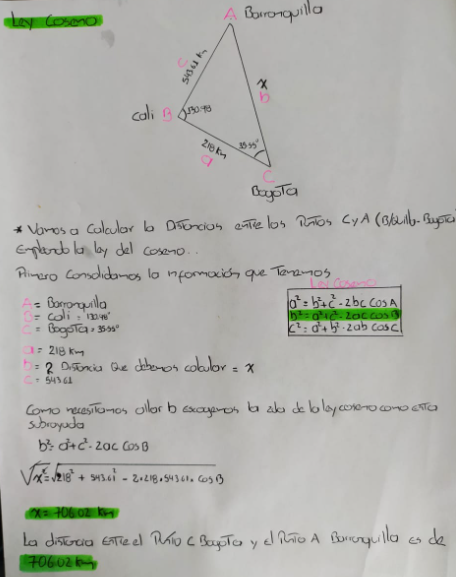 Ley Coseno
A Barranquilla
c
543.61 km
x
b
Cali B 130.48
218 km
a
35.55°
C
Bogota
* Vamos a Calcular la Distancias entre los Puntos C y A (B/quilla-Bogota)
Empleando la ley del coseno..
Primero Consolidamos la información que Tenemos
Ley Coseno
A = Barranquilla
B = Cali = 130.48°
C = Bogota = 35.55°
a² = b² + c² - 2bc cos A
b² = a² + c² - 2ac cos B
c² = a² + b² - 2ab cos C
a = 218 km
b = ? Distancia que debemos calcular = x
c = 543.61
Como necesitamos allar b escogemos la de la ley coseno como esta
subrayada
b² = a² + c² - 2ac cos B
√x² = √218² + 543.61² - 2•218•543.61• cos B
x = 706.02 km
La distancia entre el Punto C Bogota y el Punto A Barranquilla es de
706.02 km